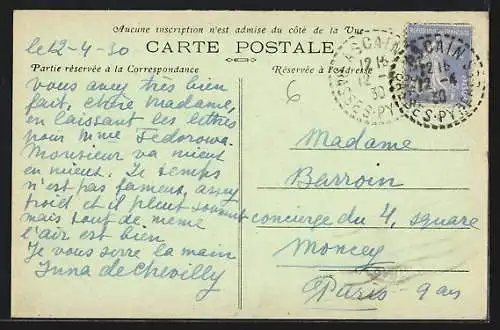 Aucune inscription n'est admise du côté de la Vue
CARTE POSTALE
Partie réservée à la Correspondance
Réservée à l'Adresse
le 12-4-30
Vous avez très bien
fait, chère Madame,
en laissant les lettres
pour Mme Fedorowa.
Monsieur va mieux
en mieux. Le temps
n'est pas fameux, assez
froid et il pleut souvent
mais tout de même
l'air est bien
Je vous serre la main
Inna de Chevilly
6
Madame
Barroin
concierge du 4, square
Moncey
Paris - 9 ar
ASCAIN
12 15
12 -4
30
BSES-PYRÉNÉES
ASCAIN
12 15
12 -4
30
BSES-PYRÉNÉES